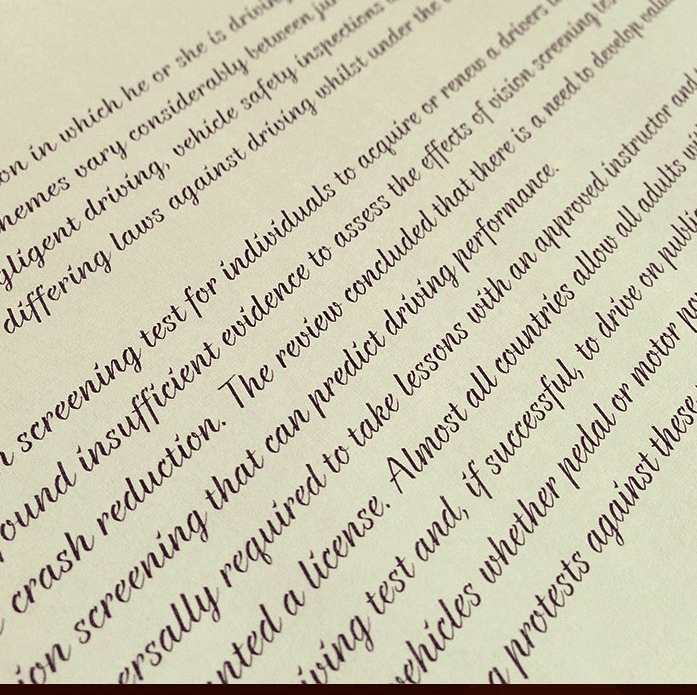 on in which he or she is driving
hemes vary considerably between
gligent driving, vehicle safety inspections
differing laws against driving whilst under the
screening test for individuals to acquire or renew a drivers
ound insufficient evidence to assess the effects of vision screening
crash reduction. The review concluded that there is a need to develop
ion screening that can predict driving performance.
ersally required to take lessons with an approved instructor and
nted a license. Almost all countries allow all adults
iving test and, if successful, to drive on
vehicles whether pedal or motor
protests against these